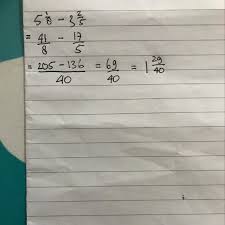 5 1/8 - 3 2/5
= 41/8 - 17/5
= 205 - 136/40 = 69/40 = 1 29/40